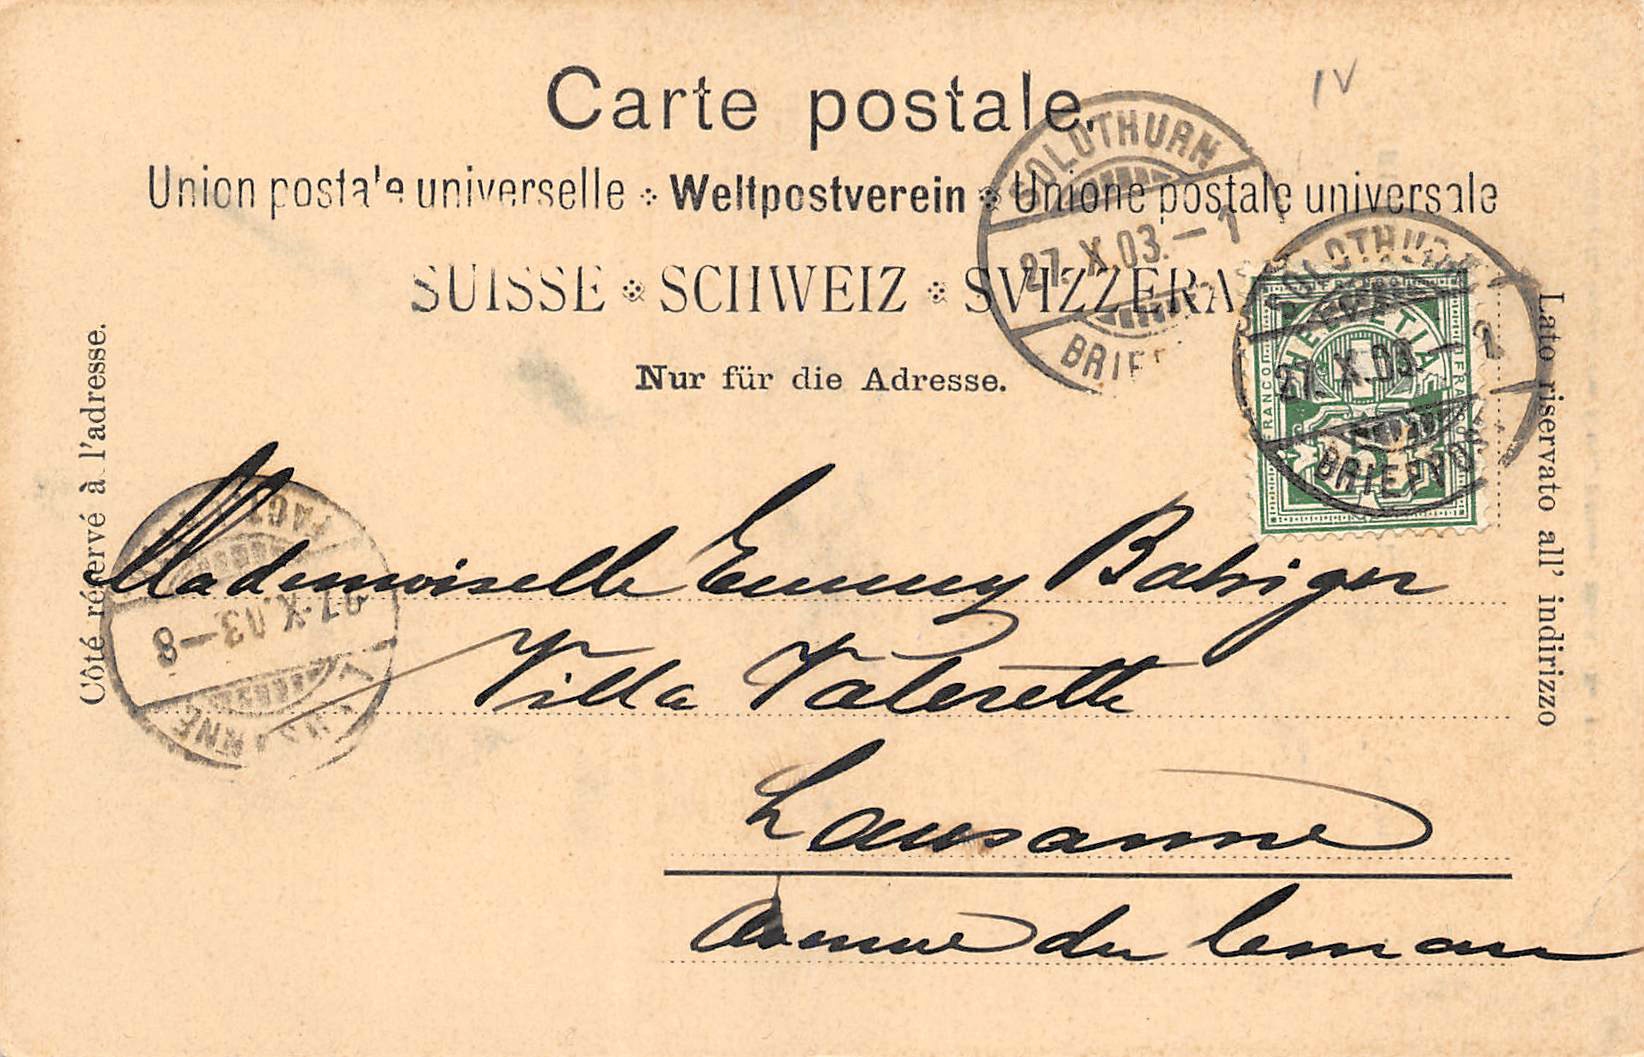 IV
Carte postale.
Union postale universelle Weltpostverein Unione postale universale
SUISSE SCHWEIZ SVIZZERA
Nur für die Adresse.
Côté réservé à l'adresse.
Lato riservato all' indirizzo
SOLOTHURN
27.X.03.–1
BRIEF
SOLOTHURN
27.X.03.–1
BRIEFPOST
HELVETIA
FRANCO
FRANCO
LAUSANNE
27.X.03–8
FACT
Mademoiselle Emmy
Villa Valerette
Lausanne
Avenue du Leman